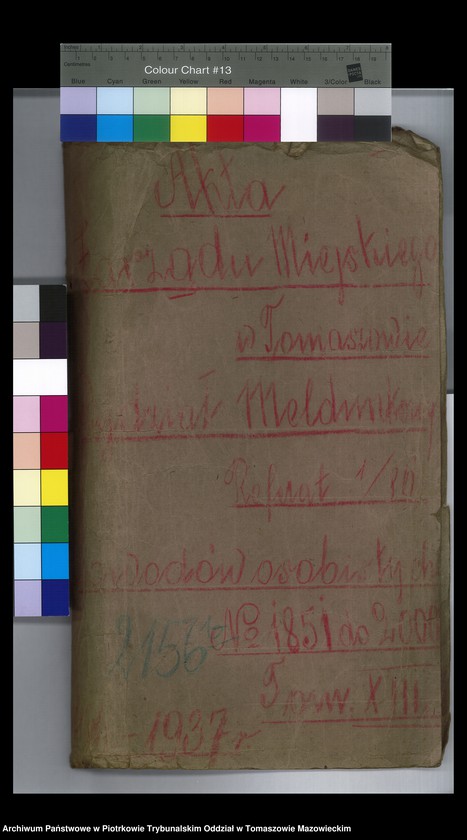 Inches
Centimetres
Colour Chart #13
Blue Cyan Green Yellow Red Magenta White 3/Color Black
Akta
Zarządu Miejskiego
w Tomaszowie
Meldunkowy
Referat 1/
dowodów osobistych
№ 1851 do 2000
Tom XIII.
1937 r
Archiwum Państwowe w Piotrkowie Trybunalskim Oddział w Tomaszowie Mazowieckim